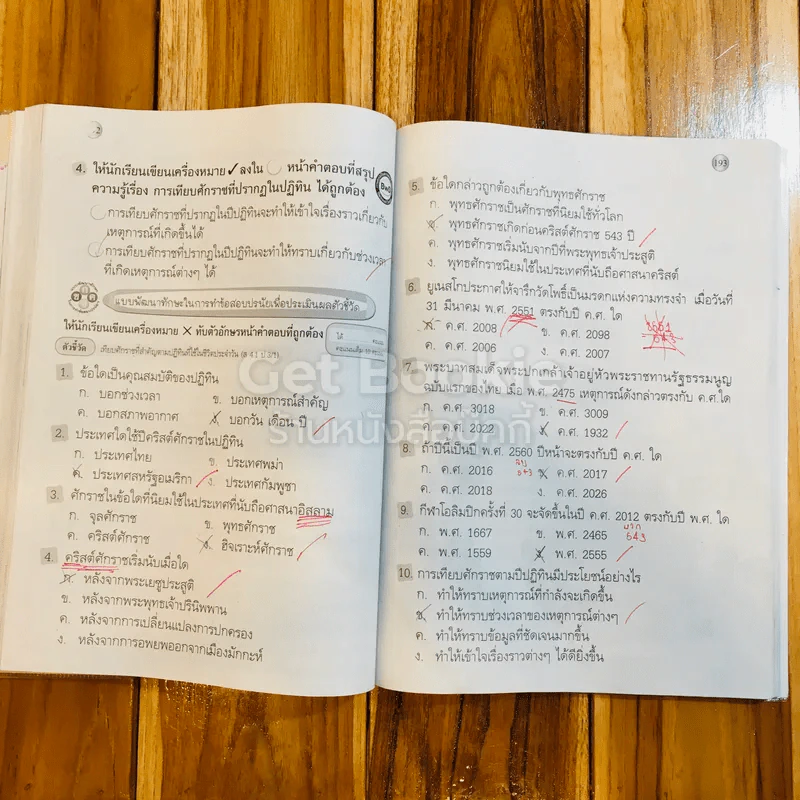 2
4. ให้นักเรียนเขียนเครื่องหมาย ✓ ลงใน ◯ หน้าคำตอบที่สรุป
ความรู้เรื่อง การเทียบศักราชที่ปรากฏในปฏิทิน ได้ถูกต้อง
การเทียบศักราชที่ปรากฏในปีปฏิทินจะทำให้เข้าใจเรื่องราวเกี่ยวกับ
เหตุการณ์ที่เกิดขึ้นได้
การเทียบศักราชที่ปรากฏในปีปฏิทินจะทำให้ทราบเกี่ยวกับช่วงเวลา
ที่เกิดเหตุการณ์ต่างๆ ได้
แบบพัฒนาทักษะในการทำข้อสอบปรนัยเพื่อประเมินผลตัวชี้วัด
ให้นักเรียนเขียนเครื่องหมาย ✕ ทับตัวอักษรหน้าคำตอบที่ถูกต้อง
ได้ คะแนน
คะแนนเต็ม 10 คะแนน
ตัวชี้วัด เทียบศักราชที่สำคัญตามปฏิทินที่ใช้ในชีวิตประจำวัน (ส 4.1 ป.3/1)
1. ข้อใดเป็นคุณสมบัติของปฏิทิน
ก. บอกช่วงเวลา ข. บอกเหตุการณ์สำคัญ
ค. บอกสภาพอากาศ ง. บอกวัน เดือน ปี
2. ประเทศใดใช้ปีคริสต์ศักราชในปฏิทิน
ก. ประเทศไทย ข. ประเทศพม่า
ค. ประเทศสหรัฐอเมริกา ง. ประเทศกัมพูชา
3. ศักราชในข้อใดที่นิยมใช้ในประเทศที่นับถือศาสนาอิสลาม
ก. จุลศักราช ข. พุทธศักราช
ค. คริสต์ศักราช ง. ฮิจเราะห์ศักราช
4. คริสต์ศักราชเริ่มนับเมื่อใด
ก. หลังจากพระเยซูประสูติ
ข. หลังจากพระพุทธเจ้าปรินิพพาน
ค. หลังจากการเปลี่ยนแปลงการปกครอง
ง. หลังจากการอพยพออกจากเมืองมักกะห์
193
5. ข้อใดกล่าวถูกต้องเกี่ยวกับพุทธศักราช
ก. พุทธศักราชเป็นศักราชที่นิยมใช้ทั่วโลก
ข. พุทธศักราชเกิดก่อนคริสต์ศักราช 543 ปี
ค. พุทธศักราชเริ่มนับจากปีที่พระพุทธเจ้าประสูติ
ง. พุทธศักราชนิยมใช้ในประเทศที่นับถือศาสนาคริสต์
6. ยูเนสโกประกาศให้จารึกวัดโพธิ์เป็นมรดกแห่งความทรงจำ เมื่อวันที่
31 มีนาคม พ.ศ. 2551 ตรงกับปี ค.ศ. ใด
2551
543
ก. ค.ศ. 2008 ข. ค.ศ. 2098
ค. ค.ศ. 2006 ง. ค.ศ. 2007
7. พระบาทสมเด็จพระปกเกล้าเจ้าอยู่หัวพระราชทานรัฐธรรมนูญ
ฉบับแรกของไทย เมื่อ พ.ศ. 2475 เหตุการณ์ดังกล่าวตรงกับ ค.ศ.ใด
ก. ค.ศ. 3018 ข. ค.ศ. 3009
ค. ค.ศ. 2022 ง. ค.ศ. 1932
8. ถ้าปีนี้เป็นปี พ.ศ. 2560 ปีหน้าจะตรงกับปี ค.ศ. ใด
ลบ
543
ก. ค.ศ. 2016 ข. ค.ศ. 2017
ค. ค.ศ. 2018 ง. ค.ศ. 2026
9. กีฬาโอลิมปิกครั้งที่ 30 จะจัดขึ้นในปี ค.ศ. 2012 ตรงกับปี พ.ศ. ใด
บวก
543
ก. พ.ศ. 1667 ข. พ.ศ. 2465
ค. พ.ศ. 1559 ง. พ.ศ. 2555
10. การเทียบศักราชตามปีปฏิทินมีประโยชน์อย่างไร
ก. ทำให้ทราบเหตุการณ์ที่กำลังจะเกิดขึ้น
ข. ทำให้ทราบช่วงเวลาของเหตุการณ์ต่างๆ
ค. ทำให้ทราบข้อมูลที่ชัดเจนมากขึ้น
ง. ทำให้เข้าใจเรื่องราวต่างๆ ได้ดียิ่งขึ้น
Get Bookie
ร้านหนังสือบุ๊คกี้